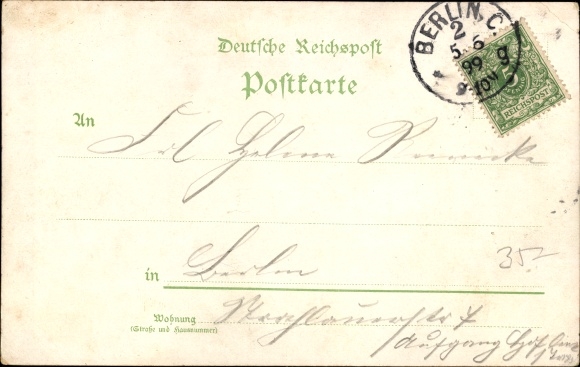 Deutsche Reichspost
Postkarte
BERLIN. C.
2
5 6
99
9-10V
g
REICHSPOST
An
Frl Helene
in Berlin
Wohnung
(Straße und Hausnummer)
Stralauerstr 7
Aufgang Hof
35-